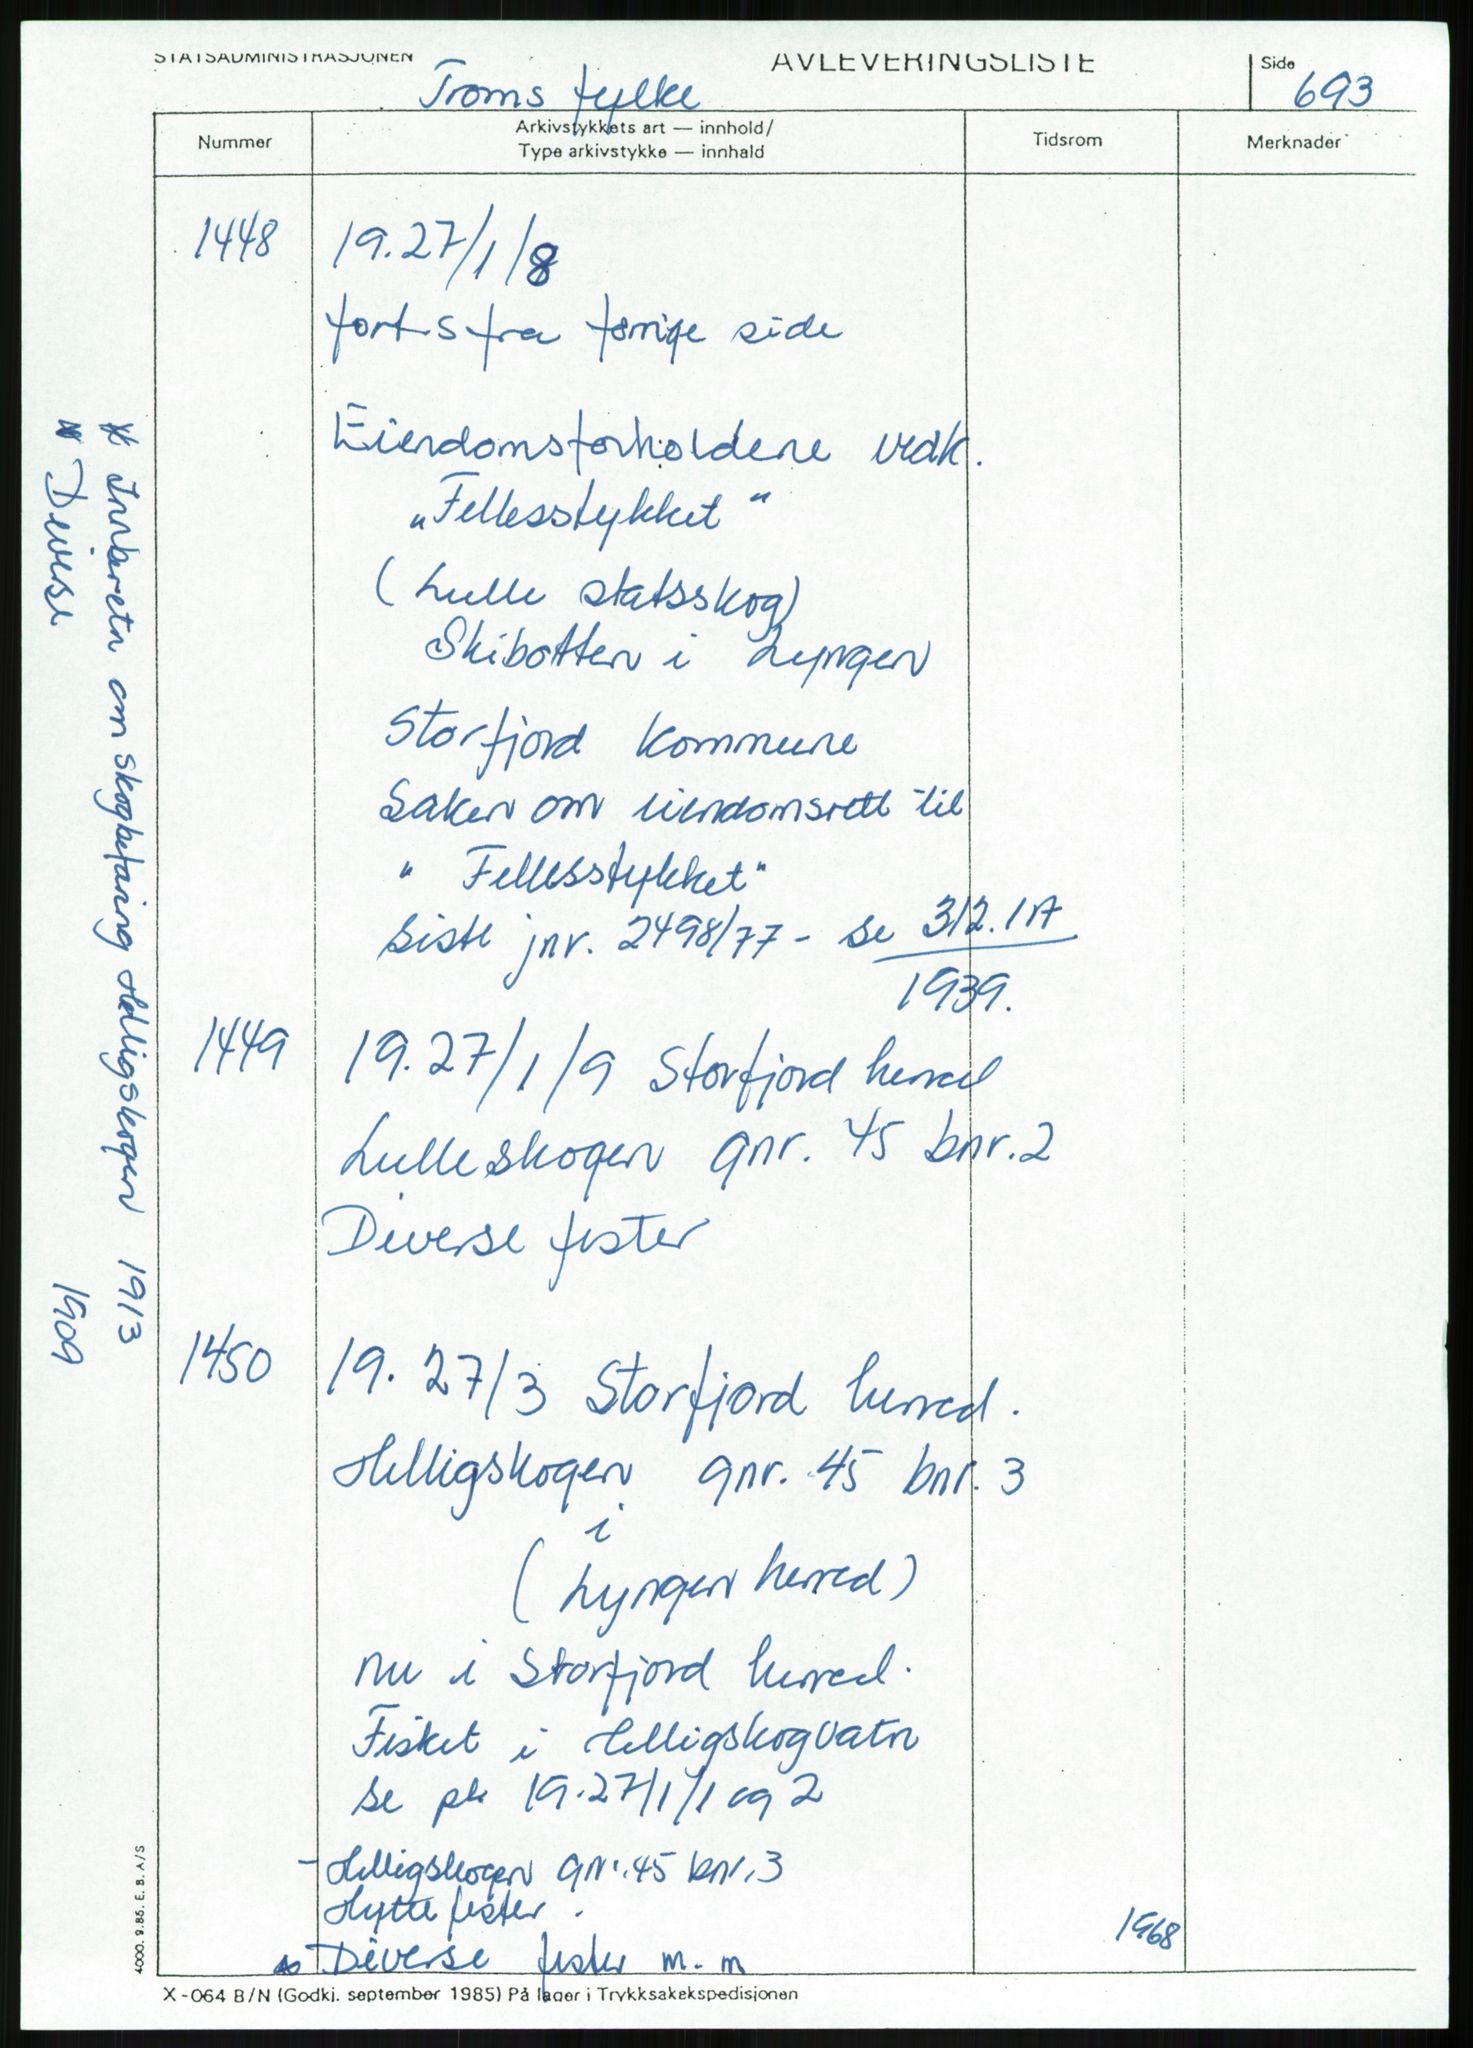 STATSADMINISTRASJONEN
AVLEVERINGSLISTE
Side
693
Troms fylke
Nummer
Arkivstykkets art — innhold/
Type arkivstykke — innhald
Tidsrom
Merknader
1448
19.27/1/8
forts fra forrige side
Eiendomsforholdene vedk.
"Fellesstykket"
(Lulle statsskog)
Skibotten i Lyngen
Storfjord kommune
Saken om eiendomsrett til
"Fellesstykket"
siste jnr. 2498/77 - se 312.1A
1939.
1449
19.27/1/9 Storfjord herred
Lulleskogen gnr. 45 bnr. 2
Diverse fester
1450
19.27/3 Storfjord herred.
Helligskogen gnr. 45 bnr. 3
i
(Lyngen herred)
nu i Storfjord herred.
Fisket i Helligskogvatn
se pk 19.27/1/1 og 2
- Helligskogen gnr. 45 bnr. 3
Hyttefester.
1968
Diverse fester m.m
* Innberetn om skogbefaring Helligskogen 1913
* Diverse 1909
4000. 9.85. E. B. A/S
X-064 B/N (Godkj. september 1985) På lager i Trykksakekspedisjonen